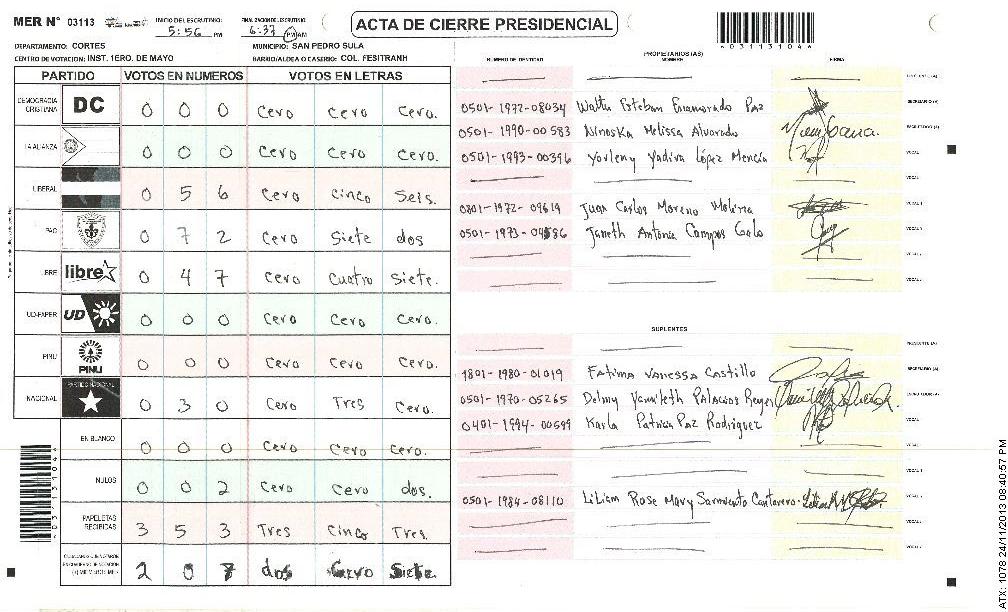 MER N° 03113 INICIO DEL ESCRUTINIO: 5:56 PM FINALIZACION DEL ESCRUTINIO: 6:37 PM/AM ACTA DE CIERRE PRESIDENCIAL
031131046
DEPARTAMENTO: CORTES MUNICIPIO: SAN PEDRO SULA
CENTRO DE VOTACION: INST. 1ERO. DE MAYO BARRIO/ALDEA O CASERIO: COL. FESITRANH
PARTIDO VOTOS EN NUMEROS VOTOS EN LETRAS
DEMOCRACIA CRISTIANA DC 0 0 0 Cero Cero Cero.
LA ALIANZA 0 0 0 Cero Cero Cero.
LIBERAL 0 5 6 Cero Cinco Seis.
PAC 0 7 2 Cero Siete dos
LIBRE libre 0 4 7 Cero Cuatro Siete.
UD-FAPER UD 0 0 0 Cero Cero Cero.
PINU PINU 0 0 0 Cero Cero Cero.
NACIONAL PARTIDO NACIONAL 0 3 0 Cero Tres Cero.
EN BLANCO 0 0 0 Cero Cero Cero.
NULOS 0 0 2 Cero Cero dos.
PAPELETAS RECIBIDAS 3 5 3 Tres Cinco Tres.
2 0 7 dos Cero Siete.
031131046
PROPIETARIOS (AS)
NUMERO DE IDENTIDAD NOMBRE FIRMA
PRESIDENTE (A)
0501-1972-08034 Walter Esteban Enamorado Paz SECRETARIO (A)
0501-1990-00583 Ninoska Melissa Alvarado ESCRUTADOR (A)
0501-1993-00396 Yorleny Yadira López Mencía VOCAL
VOCAL
0801-1972-09619 Juan Carlos Moreno Molina VOCAL
0501-1973-04586 Janeth Antonia Campos Galo VOCAL
VOCAL
VOCAL
SUPLENTES
PRESIDENTE (A)
1801-1980-01019 Fatima Vanessa Castillo SECRETARIO (A)
0501-1970-05265 Delmy Yamileth Palacios Reyes ESCRUTADOR (A)
0401-1994-00599 Karla Patricia Paz Rodriguez VOCAL
VOCAL
VOCAL
0501-1984-08110 Liliam Rose Mary Sarmiento Cantarero. VOCAL
VOCAL
VOCAL
ATX: 1078 24/11/2013 08:40:57 PM